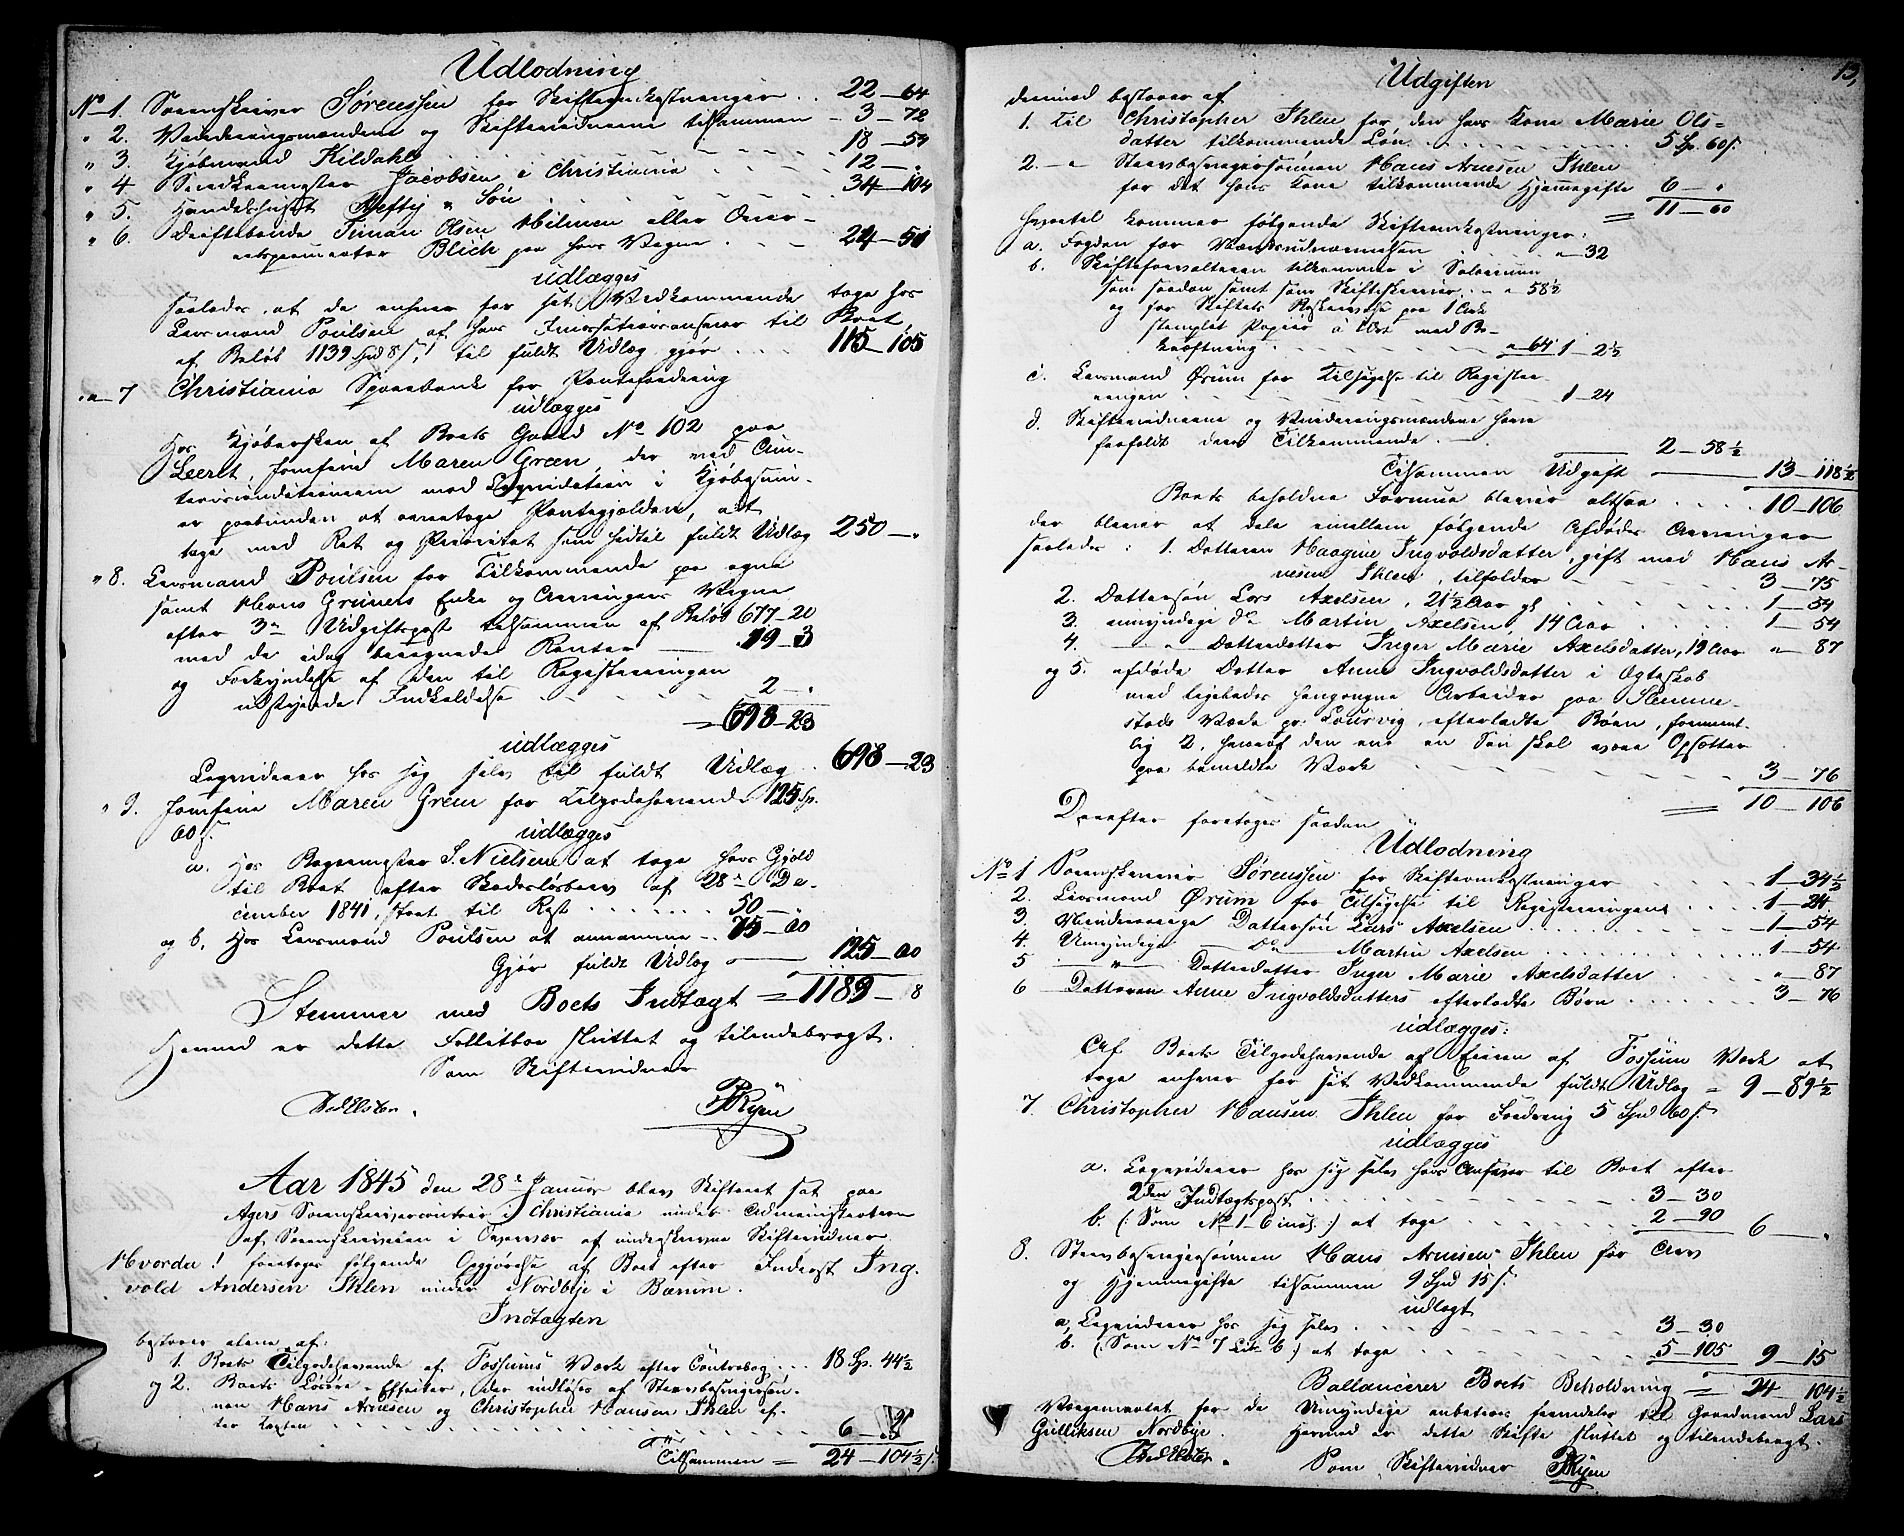 Udlodning
No 1. Sorenskriver Sørenssen for Skifteomkostninger . . 22 – 64
" 2. Vurderingsmændene og Skiftevidnerne tilsammen – 3 – 72
" 3. Kjøbmand Kildahl . . . 18 – 59
" 4 Snedkermester Jacobsen i Christiania . . . 12 – "
" 5. Handelshuset Hefty & Søn . . . 34 – 104
" 6. Driftebonde Siman Olsen Hilmen eller Over-
retsprocurator Blich paa hans Vegne . . . 24 – 51
udlægges
saaledes, at de enhver for sit Vedkommende tage hos
Lensmand Poulsen af hans Incassationsansvar til Boet,
af Beløb 1139 Spd 8 s, til fuldt Udlæg gjør . . . 115 – 105
" 7 Christiania Sparebank for Pantefordring
udlægges
Hos Kjøbersken af Boets Gaard No 102 paa
Leeret, Jomfrue Maren Green der ved Auc-
tionsconditionerne med Liqvidation i Kjøbesum-
er forbunden at overtage Pantegjælden, at
tage med Ret og Prioritet som hidtil fuldt Udlæg 250 – "
" 8. Lensmand Poulsen for Tilkommende paa egne
samt Hans Grüners Enke og Arvingers Vegne
efter 3de Udgiftspost tilsammen af Beløb 677 – 20
med de idag beregnede Renter — 19 – 3
og Forkyndelse af den til Registreringen
udstedede Indkaldelse . . . 2 – "
= 698 – 23
udlægges
Liqviderer hos sig selv til fuldt Udlæg . 698 – 23
" 9. Jomfrue Maren Green for Tilgodehavende 125 Sp.
60 s.
udlægges
a. Hos Bagermester S. Nielsen at tage hans Gjæld
til Boet efter Skadesløsbrev af 28de De-
cember 1841, stort til Rest . . . 50 – "
og b. Hos Lensmand Poulsen at annamme . . 75 – 60
Gjør fuldt Udlæg — 125 – 60
Stemmer med Boets Indtægt = 1189 – 8
Hermed er dette Fallitboe sluttet og tilendebragt.
Som Skiftevidner
Aar 1845 den 28de Januar blev Skifteret sat paa
Agers Sorenskrivercontoir i Christiania under Administration
af Sorenskriveren i Overvær af underskrevne Skiftevidner.
Hvorda! foretoges følgende Opgjørelse af Boet efter Inderst Ing-
vold Andersen Ihlen under Nordbye i Bærum.
Indtægten
bestaaer alene af:
1. Boets Tilgodehavende af Fossums Værk efter Contrabog . . . 18 Sp. 44½
og 2. Boets Løsøre-Effecter, der indløses af Stervbosvigersøn-
nen Hans Arnesen og Christopher Hansen Ihlen ef-
ter Taxten . . . 6 –
Tilsammen = 24 – 104½ s.
13,
Udgiften
derimod bestaaer af
1. Til Christopher Ihlen for den hans Kone Marie Ols-
datter tilkommende Løn . . . 5 Sp. 60 s.
2. — " Stervbosvigersønnen Hans Arnesen Ihlen
for det hans Kone tilkommende Hjemmegifte 6 – "
= 11 – 60
hvortil kommer følgende Skifteomkostninger:
a. Fogden for Værgeudnævnelsen . . . " – 32
b. Skifteforvalteren tilkommer i Salarium
som saadan samt som Skifteskriver . . – " 58½
og for Skiftets Beskrivelse paa 1 Ark
stemplet Papiir à 1 Ort med Be-
kræftning . . . " 64 1 – 2½
c. Lensmand Ørum for Tilsigelse til Registre-
ringen . . . 1 – 24
d. Skiftevidnerne og Vurderingsmændene have
frafaldt deres Tilkommende . —
2 – 58½
Tilsammen Udgift — 13 – 118½
Boets beholdne Formue bliver altsaa . . . 10 – 106
der bliver at dele imellem følgende Afdødes Arvinger
saaledes: 1. Datteren Haagine Ingvoldsdatter, gift med Hans Ar-
nesen Ihlen, tilfalder . . . 3 – 75
2. Dattersøn Lars Axelsen, 21½ Aar gl. . . . 1 – 54
3. umyndige do Martin Axelsen 14 Aar . . . 1 – 54
4. — " — Datterdatter Inger Marie Axelsdatter, 19 Aar " – 87
og 5. afdøde Datter Anne Ingvoldsdatter i Ægteskab
med ligeledes hengangne Arbeider paa Hemme-
stads Værk pr. Laurvig, efterladte Børn, formment-
lig 2, hvoraf den ene en Søn skal være Opsætter
paa bemeldte Værk . . . 3 – 76
= 10 – 106
Derefter foretoges saadan
Udlodning
No 1 Sorenskriver Sørenssen for Skifteomkostninger . . . 1 – 34½
2. Lensmand Ørum for Tilsigelse til Registreringen . . . 1 – 24
3. Mindreaarige Dattersøn Lars Axelsen . . . 1 – 54
4. Umyndige — Do — Martin Axelsen . . . 1 – 54
5 — " — Datterdatter Inger Marie Axelsdatter . " – 87
6 Datteren Anne Ingvoldsdatters efterladte Børn . . . 3 – 76
udlægges:
Af Boets Tilgodehavende af Eieren af Fossum Værk at
tage enhver for sit Vedkommende fuldt Udlæg = 9 – 89½
7. Christopher Hansen Ihlen for Fordring 5 Spd 60 s.
udlægges
a. Liqviderer hos sig selv hans Ansvar til Boet efter
2den Indtægtspost . . . 3 – 30
b. (: Som No 1–6 incl. :) at tage . . . 2 – 90 6 – "
8. Stervbosvigersønnen Hans Arnesen Ihlen for Arv
og Hjemmegifte tilsammen 9 Spd 15 s.
udlagt
a, Liqviderer hos sig selv . . . 3 – 30
b. (: Som No 7 Lit. b :) at tage . . . 5 – 105 9 – 15
Ballancerer Boets Beholdning = 24 104½
Værgemaalet for de Umyndige anbetroes fremdeles til Gaardmand Lars
Gulliksen Nordbye. Hermed er dette Skifte sluttet og tilendebragt.
Som Skiftevidner